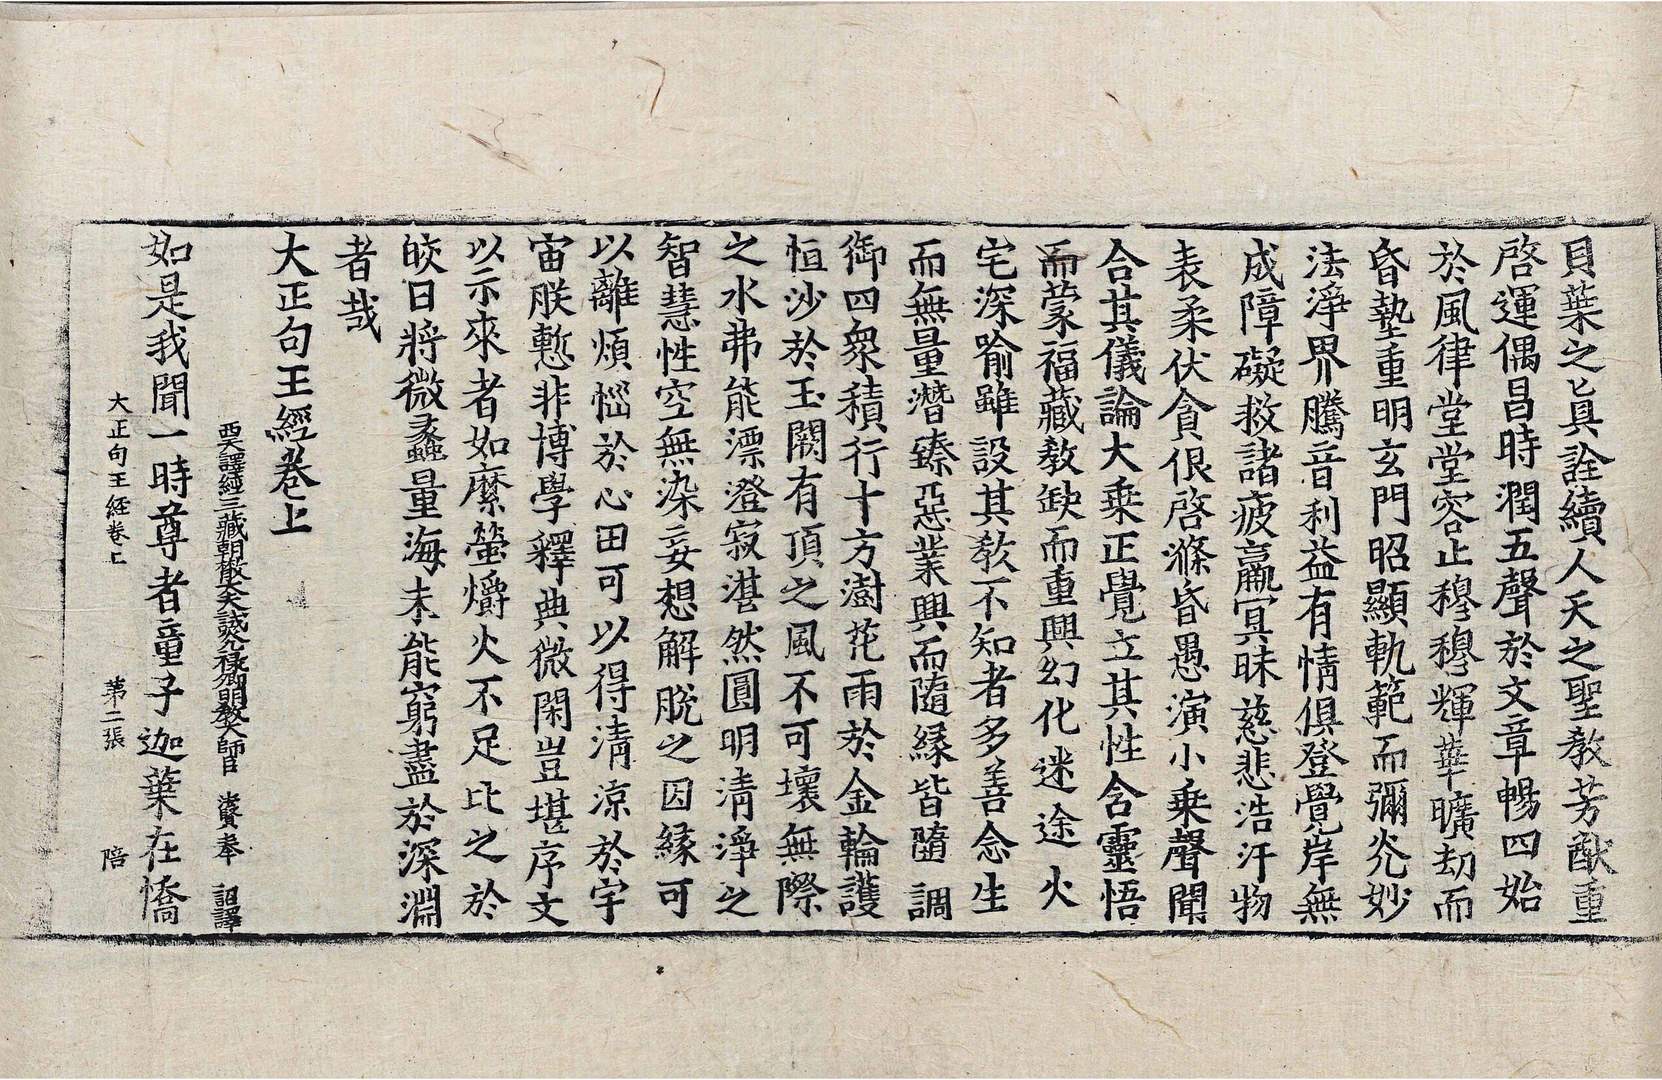 貝葉之眞詮續人天之聖教芳猷重
啓運偶昌時潤五聲於文章暢四始
於風律堂堂容止穆穆輝華曠劫而
昏墊重明玄門昭顯軌範而彌光妙
法淨界騰音利益有情俱登覺岸無
成障礙救諸疲羸冥昧慈悲浩汗物
表柔伏貪佷啓滌昏愚演小乗聲聞
合其儀論大乗正覺立其性含靈悟
而蒙福藏教缺而重興幻化迷途火
宅深喻雖設其教不知者多善念生
而無量潛臻惡業興而隨縁皆墮調
御四衆積行十方澍花雨於金輪護
恒沙於玉闕有頂之風不可壞無際
之水弗能漂澄寂湛然圓明清淨之
智慧性空無染妄想解脫之因縁可
以離煩惱於心田可以得清涼於宇
宙朕慙非博學釋典微閑豈堪序文
以示來者如縻螢爝火不足比之於
皎日將微蠡量海未能窮盡於深淵
者哉
大正句王經卷上
西天譯經三藏朝散大夫試光祿卿明教大師臣 法賢奉 詔譯
如是我聞一時尊者童子迦葉在憍
大正句王經卷上 第二張 陪